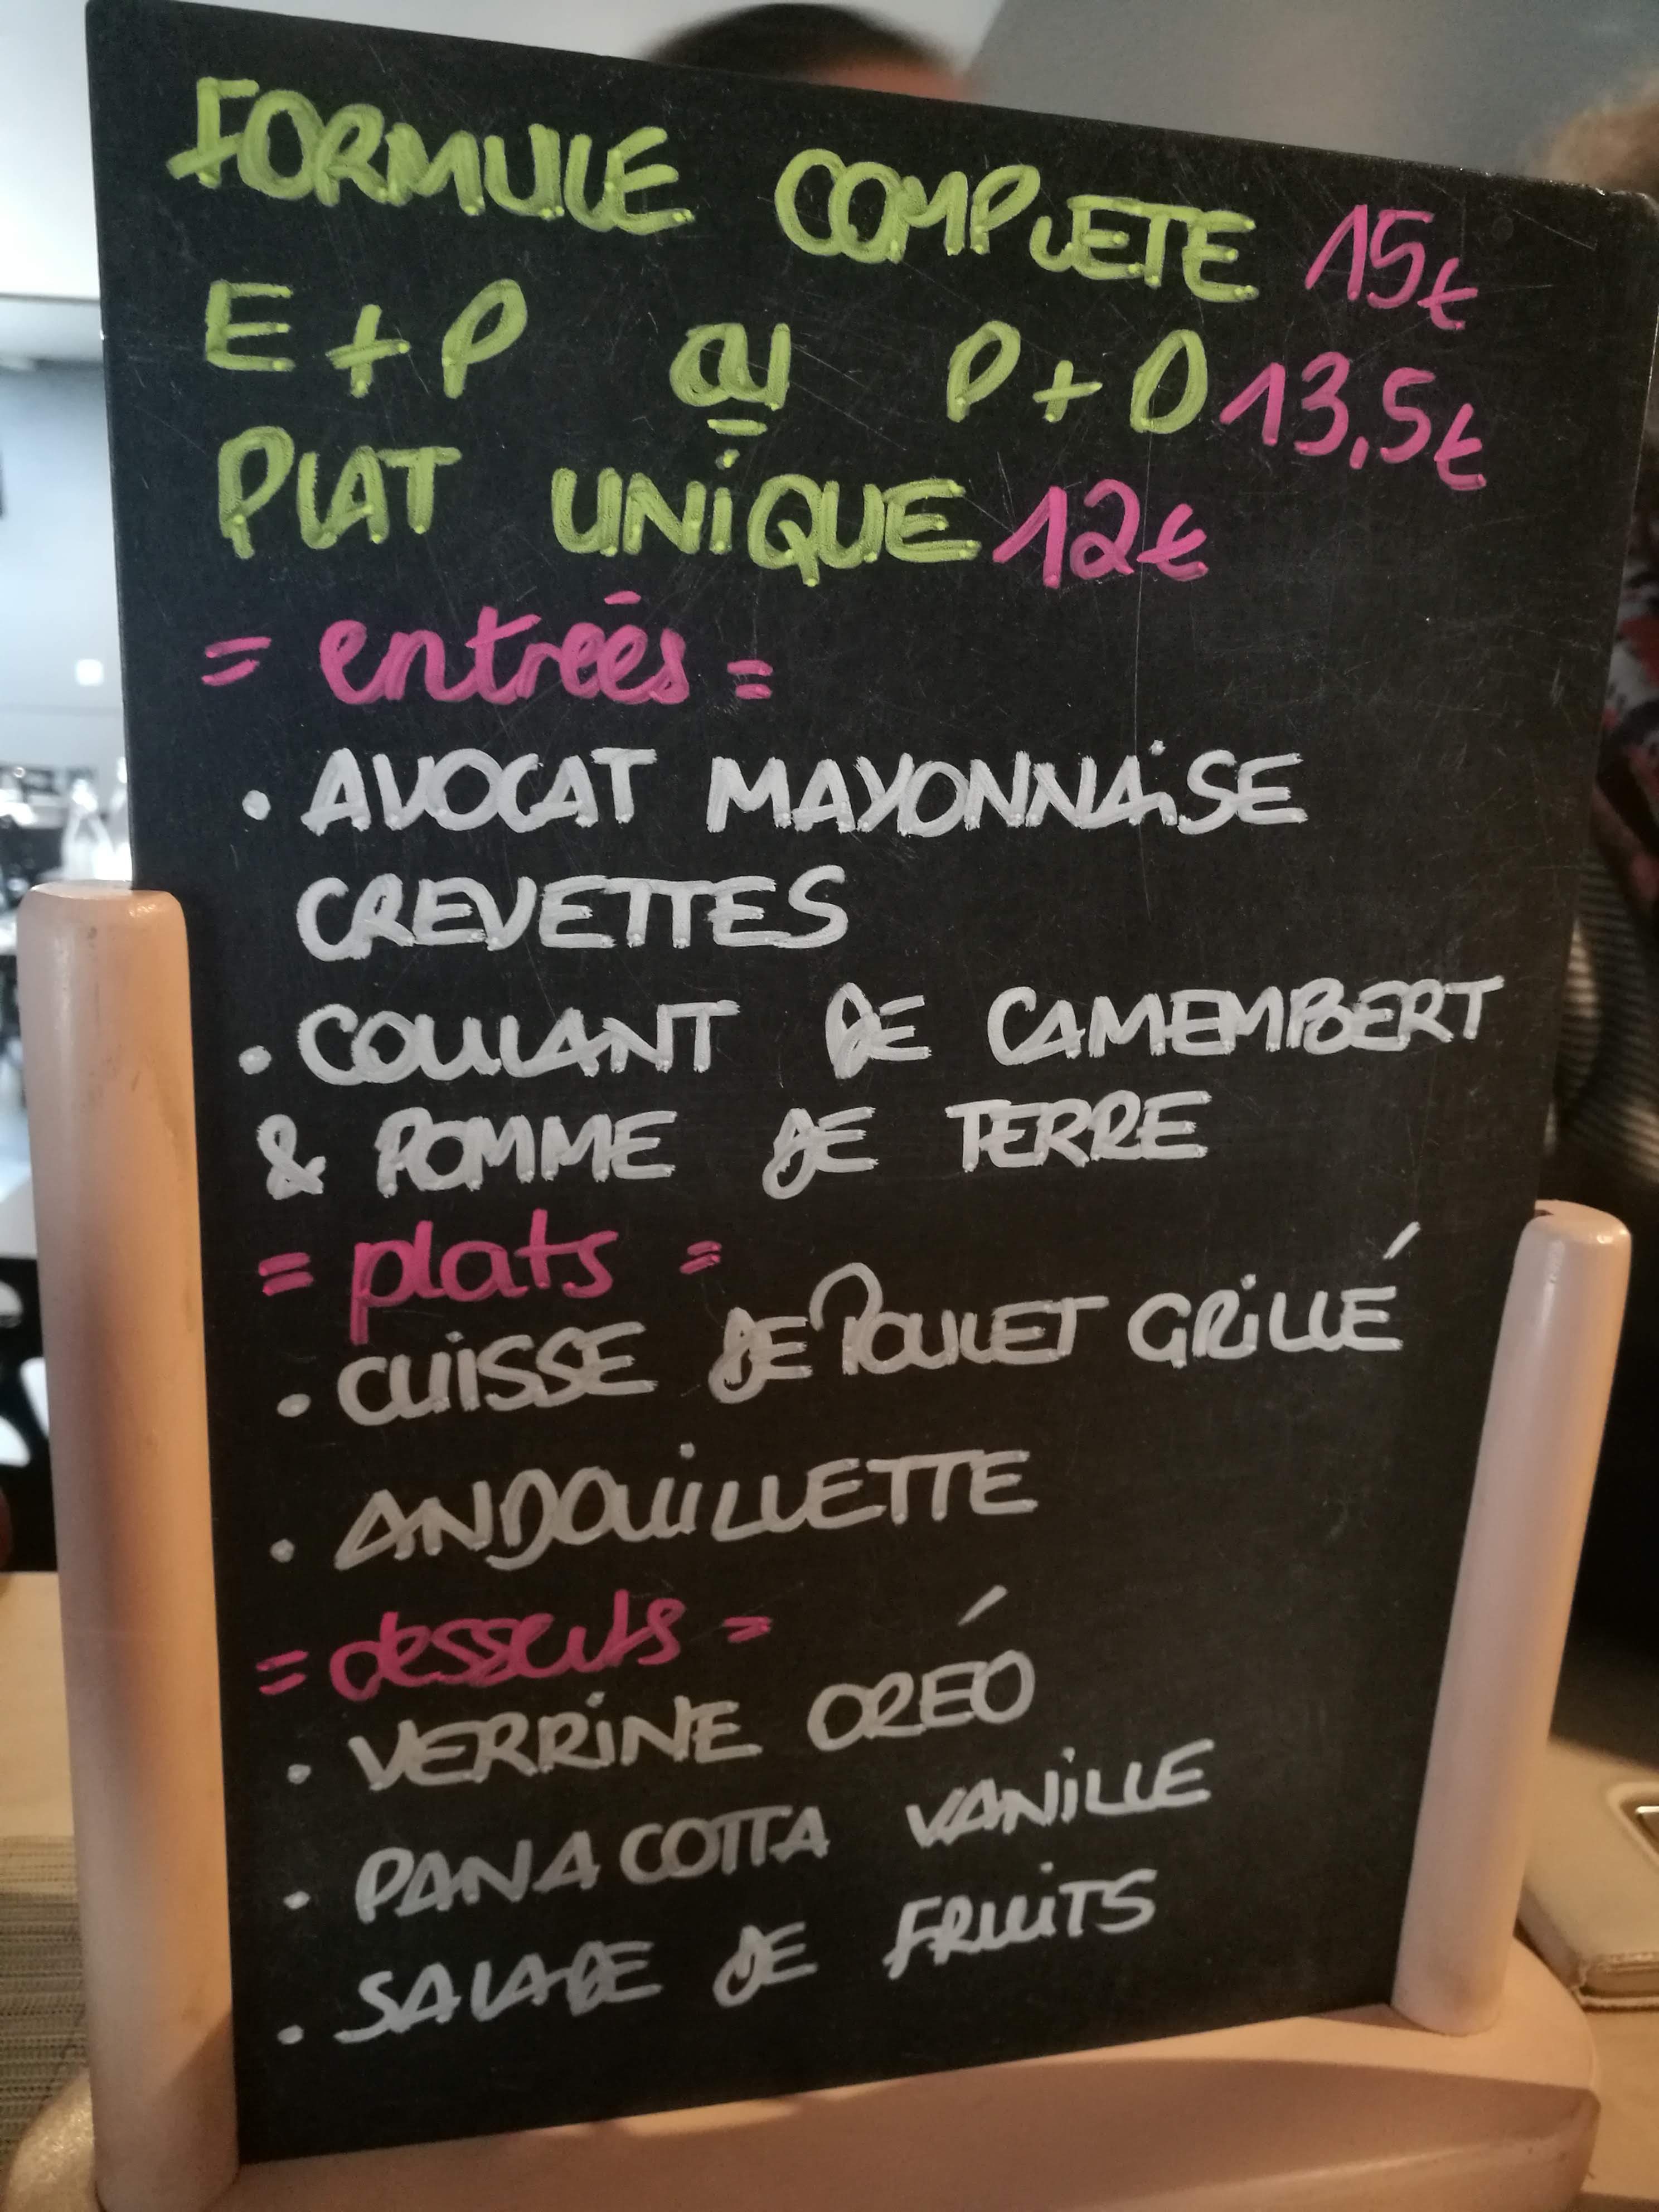 FORMULE COMPLETE 15€
E + P ou P + D 13,5€
PLAT UNIQUE 12€
= entrées =
. AVOCAT MAYONNAISE
CREVETTES
. COULANT DE CAMEMBERT
& POMME DE TERRE
= plats =
. CUISSE DE POULET GRILLÉ
. ANDOUILLETTE
= desserts =
. VERRINE ORÉO
. PANA COTTA VANILLE
. SALADE DE FRUITS